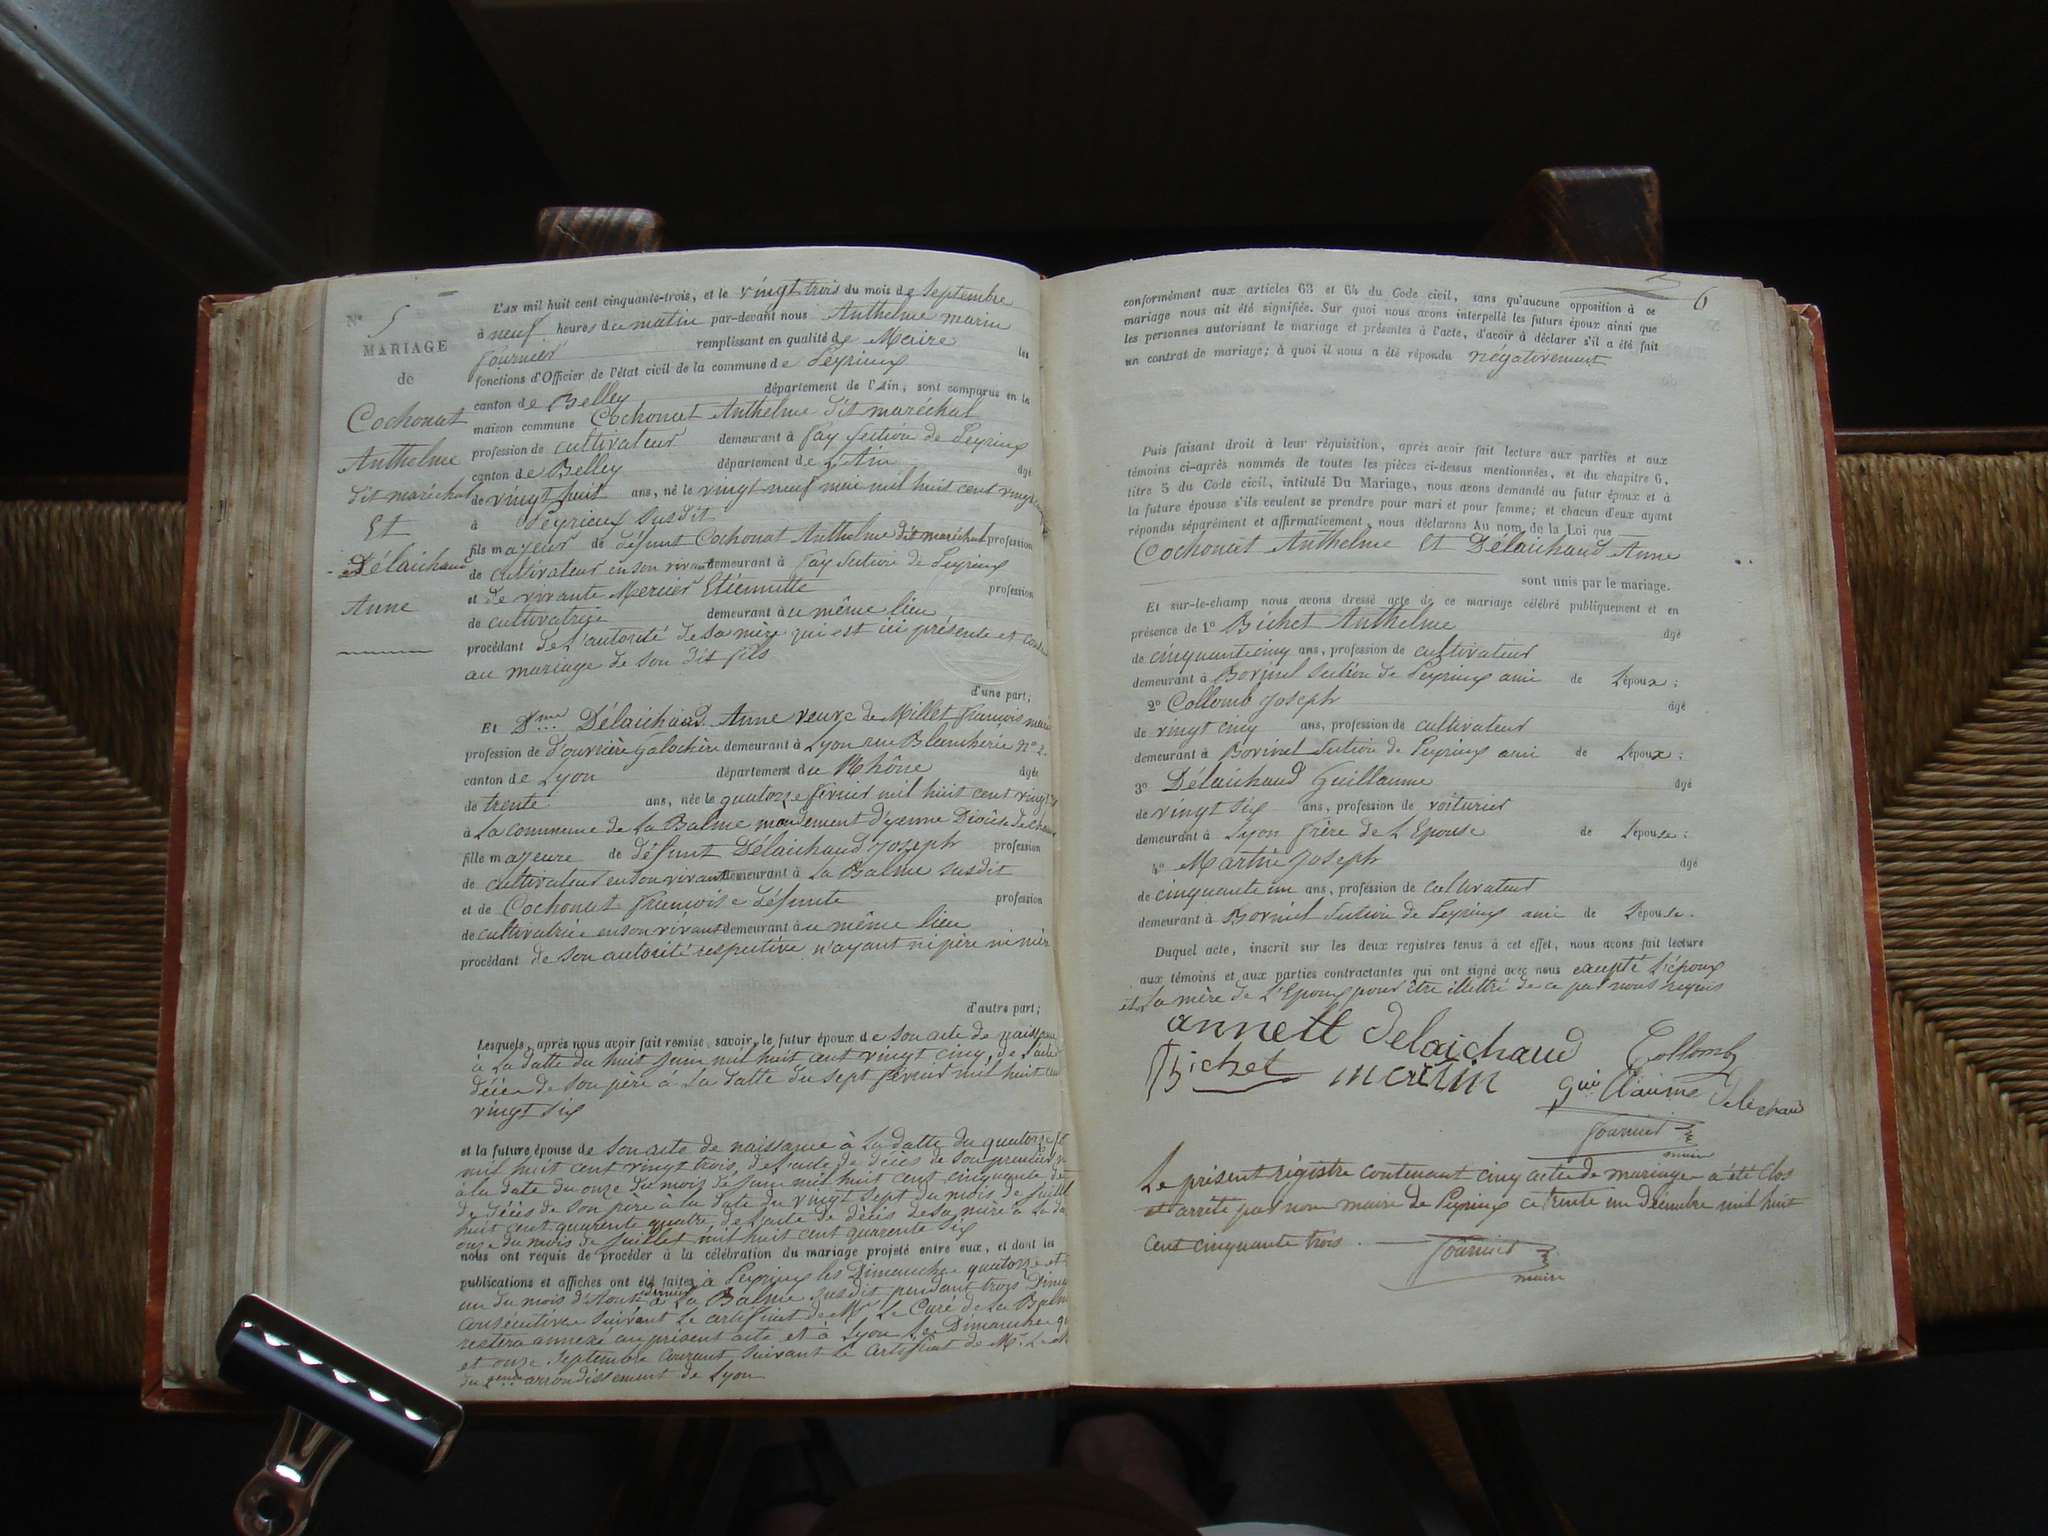 N° 5
MARIAGE
de
Cochonat
Anthelme
dit maréchal
Et
Délaichaud
Anne
L'AN mil huit cent cinquante-trois, et le vingt trois du mois de Septembre
à neuf heures du matin par-devant nous Anthelme marin
fournier remplissant en qualité de Maire les
fonctions d'Officier de l'état civil de la commune de Peyrieux
canton de Belley département de l'Ain, sont comparus en la
maison commune Cochonat Anthelme dit maréchal
profession de cultivateur demeurant à fay Section de Peyrieux
canton de Belley département de L'Ain âgé
de vingt huit ans, né le vingt neuf mai mil huit cent vingt
à Peyrieux Susdit
fils majeur de défunt Cochonat Anthelme dit maréchal profession
de cultivateur en son vivant demeurant à fay Section de Peyrieux
et de vivante Mercier Etiennette profession
de cultivatrice demeurant à u même lieu
procédant de L'autorité de Sa mère qui est ici présente et
au mariage de Son dit fils
d'une part;
Et Dme Délaichaud Anne veuve de Millet françois
profession de d'ouvrière Galochère demeurant à Lyon rue Blancherie n° 2
canton de Lyon département du Rhône âgée
de trente ans, née le quatorze février mil huit cent vingt
à La commune de La Balme mandement d'yenne Diocèse de
fille majeure de défunt Délaichaud Joseph profession
de cultivateur en son vivant demeurant à La Balme Susdit
et de Cochonat françoise défunte profession
de cultivatrice en son vivant demeurant à u même lieu
procédant de Son autorité respective n'ayant ni père ni mère
d'autre part;
Lesquels, après nous avoir fait remise, savoir, le futur époux de Son acte de naissance
à La datte du huit juin mil huit cent vingt cinq, de l'acte
décès de Son père à La datte du Sept février mil huit cent
vingt Six
et la future épouse de Son acte de naissance à La datte du quatorze
mil huit cent vingt trois, de l'acte de décès de Son premier
à la date du onze du mois de juin mil huit cent cinquante
de décès de Son père à la date du vingt Sept du mois de juillet
huit cent quarente quatre, de l'acte de décès de Sa mère à La
onze du mois de juillet mil huit cent quarente Six
nous ont requis de procéder à la célébration du mariage projeté entre eux, et dont les
publications et affiches ont été faites à Peyrieux les Dimanche quatorze et
un du mois d'Aout dernier à La Balme Susdit pendant trois
consécutives Suivant Le certificat de Mr Le Curé de La Balme
restera annexé au présent acte et à Lyon Les Dimanche
et onze Septembre courant Suivant le certificat de Mr Le
du arrondissement de Lyon
6
conformément aux articles 63 et 64 du Code civil, sans qu'aucune opposition à ce
mariage nous ait été signifiée. Sur quoi nous avons interpellé les futurs époux ainsi que
les personnes autorisant le mariage et présentes à l'acte, d'avoir à déclarer s'il a été fait
un contrat de mariage; à quoi il nous a été répondu négativement
Puis faisant droit à leur réquisition, après avoir fait lecture aux parties et aux
témoins ci-après nommés de toutes les pièces ci-dessus mentionnées, et du chapitre 6,
titre 5 du Code civil, intitulé Du Mariage, nous avons demandé au futur époux et à
la future épouse s'ils veulent se prendre pour mari et pour femme; et chacun d'eux ayant
répondu séparément et affirmativement, nous déclarons Au nom de la Loi que
Cochonat Anthelme Et Délaichaud Anne
sont unis par le mariage.
Et sur-le-champ nous avons dressé acte de ce mariage célébré publiquement et en
présence de 1° Bichet Anthelme âgé
de cinquante cinq ans, profession de cultivateur
demeurant à Borinel Section de Peyrieux ami de L'époux;
2° Collomb Joseph âgé
de vingt cinq ans, profession de cultivateur
demeurant à Borinel Section de Peyrieux ami de L'époux;
3° Délaichaud Guillaume âgé
de vingt Six ans, profession de voiturier
demeurant à Lyon frère de L'Epouse de L'épouse;
4° Martin Joseph âgé
de cinquante un ans, profession de cultivateur
demeurant à Borinel Section de Peyrieux ami de L'épouse.
Duquel acte, inscrit sur les deux registres tenus à cet effet, nous avons fait lecture
aux témoins et aux parties contractantes qui ont signé avec nous excepté L'époux
et La mère de L'Epoux pour être illettré de ce par nous requis
annett delaichaud Collomb
Bichet martin gui llaume Delechaud
fournier
maire
Le présent régistre contenant cinq acte de mariage a été Clos
et arrêté par nous maire de Peyrieux ce trente un Décembre mil huit
cent cinquante trois. fournier
maire